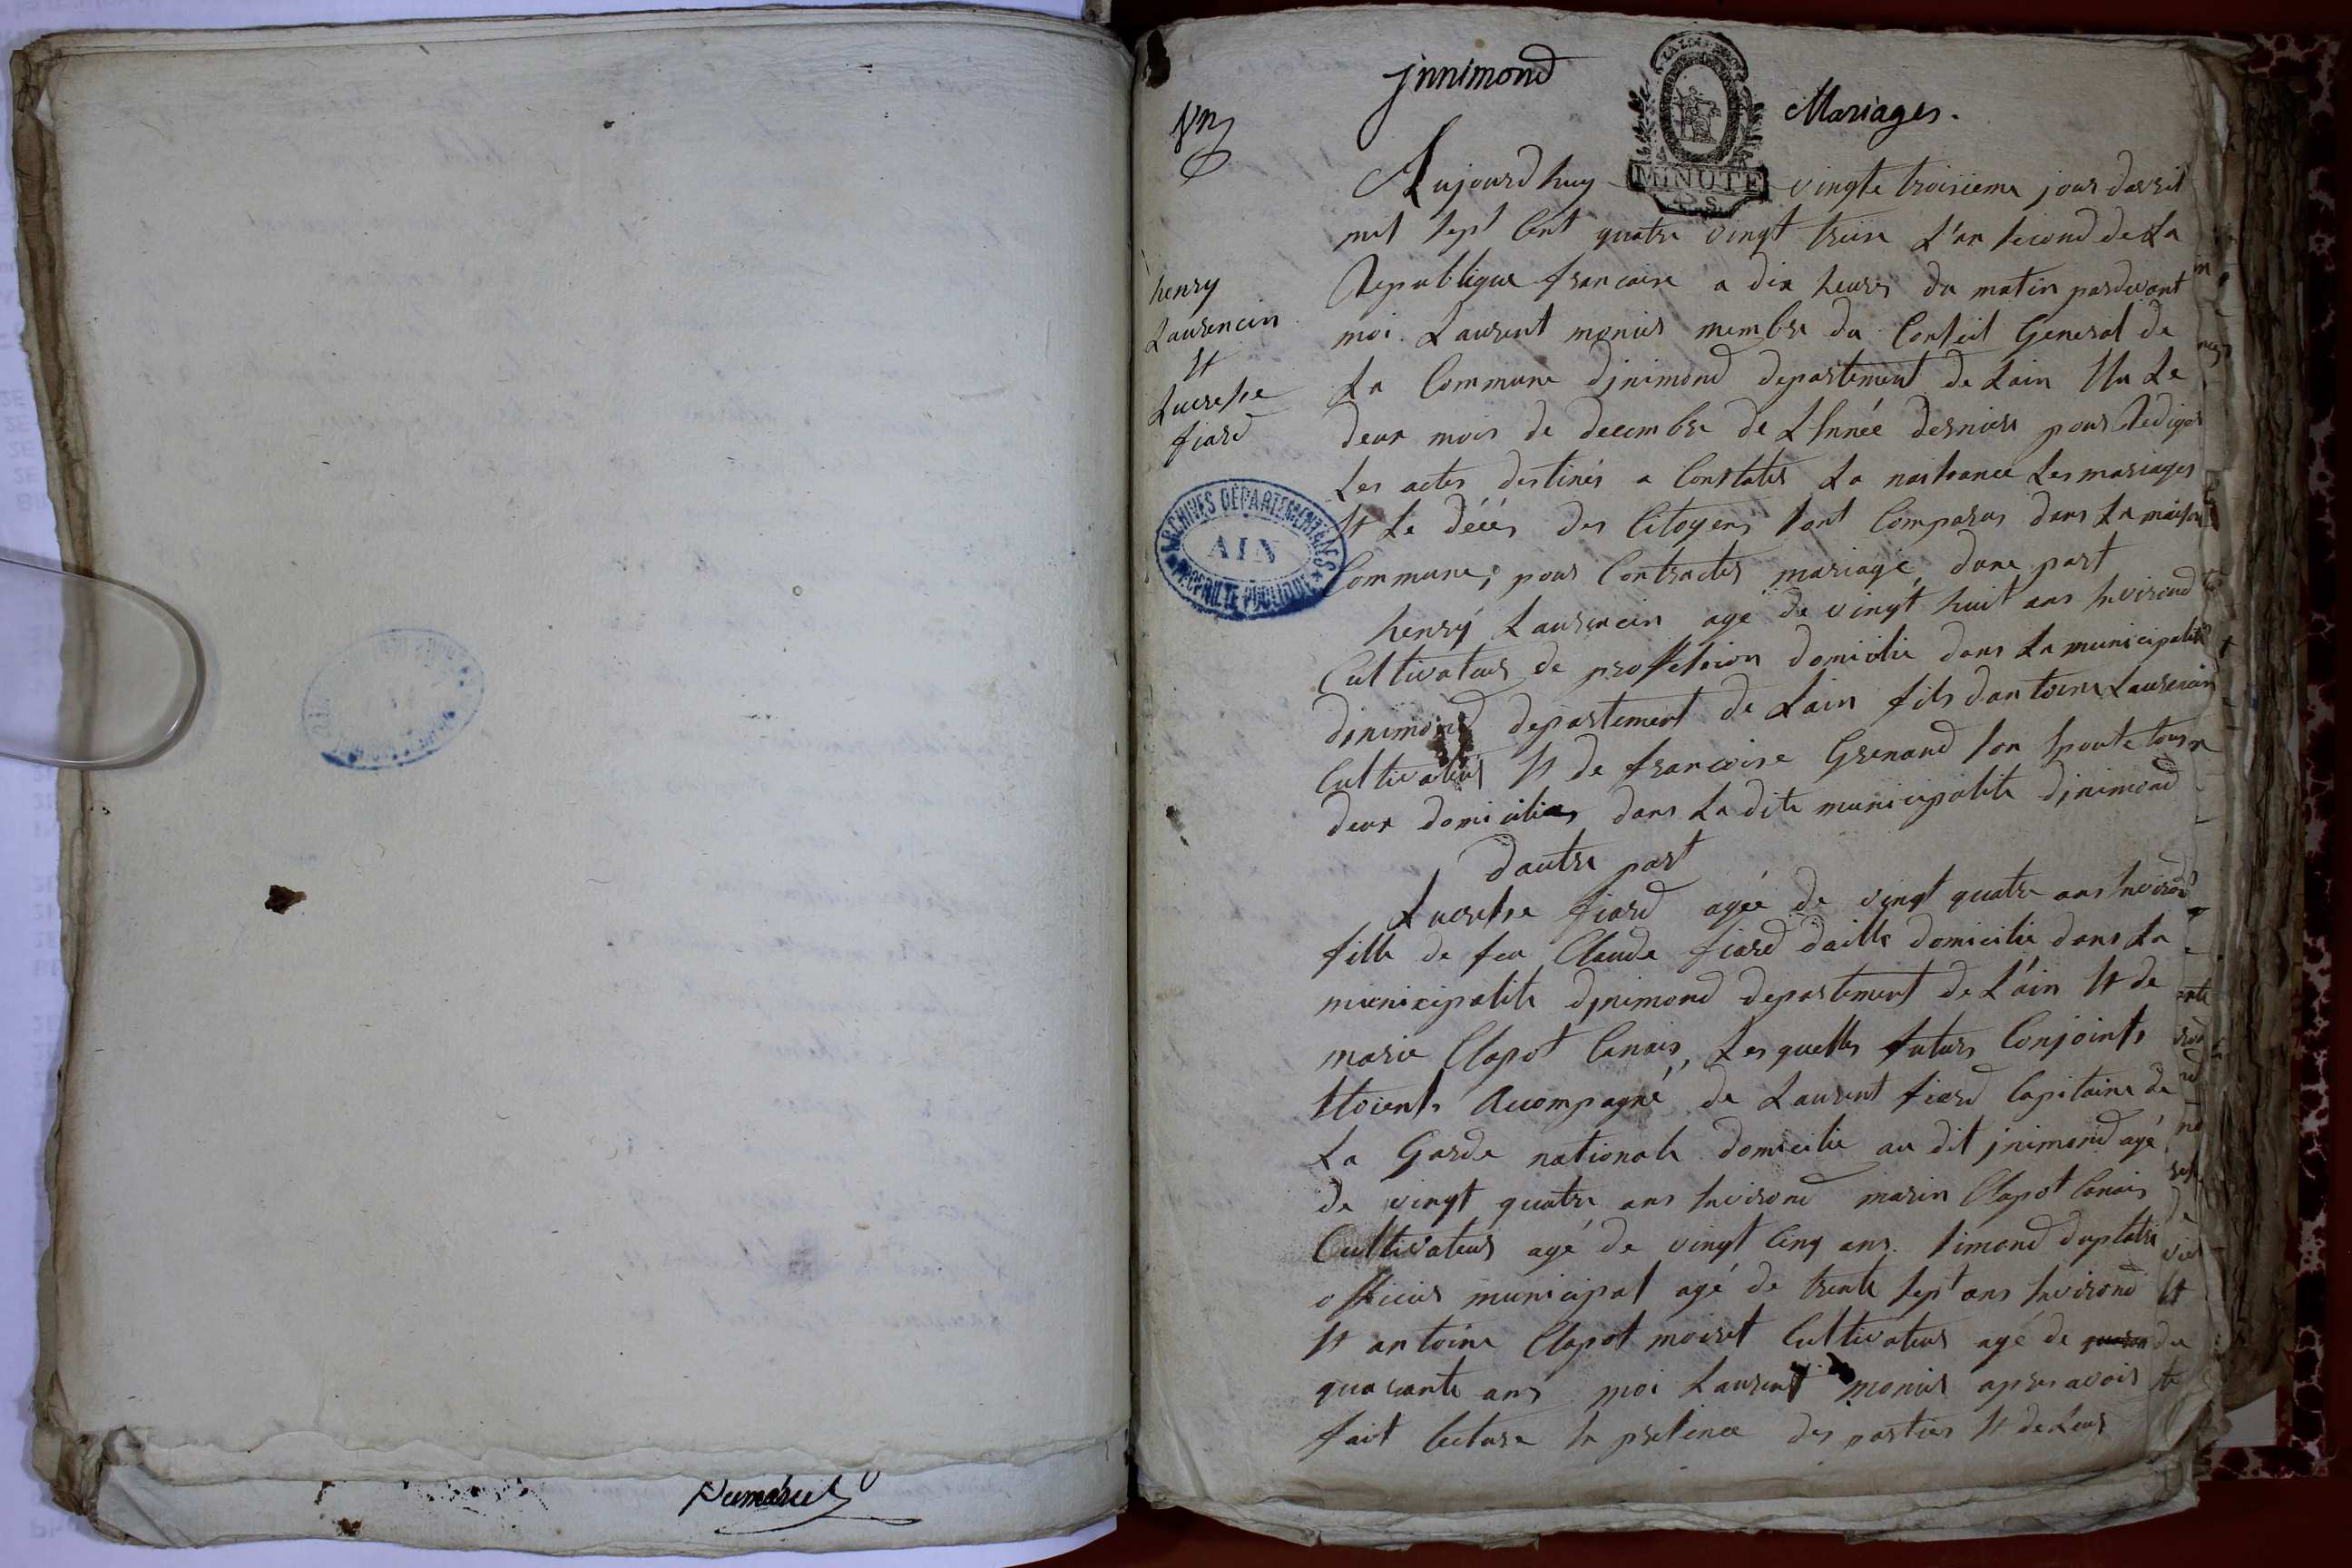 jnnimond
Mariages.
MINUTE
henry
Laurencin
Et
Lucresse
fiard
ARCHIVES DÉPARTEMENTALES
AIN
PROPRIÉTÉ PUBLIQUE
Aujourdhuy vingte troisieme jour davril
mil sept Cent quatre vingt treise L'an second de La
Republique francaise a dix heures du matin pardevant
moi Laurent monier membre du Conseil General de
La Commune djnimond departement de Lain Elu Le
deux mois de decembre de L'Année derniere pour Rediger
Les actes destinés a Constater La naissance Les mariages
Et Le décés des Citoyens sont Comparus dans La maison
Commune, pour Contracter mariage, dune part
henry Laurencin agé de vingt huit ans Environd
Cultivateur de profession domicilié dans La municipalité
djnimond departement de Lain fils dantoine Laurencin
Cultivateur Et de francoise Grenand son Epouse tous
deux domicilies dans La dite municipalite djnimond
dautre part
Lucresse fiard agée de vingt quatre ans Environd
fille de feu Claude fiard daille domicilie dans La
municipalite djnimond departement de L'ain Et de
marie Clapot Canais, Les quelles futurs Conjoints
Etoients Accompagné de Laurent fiard Capitaine de
La Garde nationale domicilie au dit jnimond agé
de vingt quatre ans Environd marin Clapot Canais
Cultivateur agé de vingt Cinq ans. simond duplatre
officier municipal agé de trente sept ans Environd
Et antoine Clapot moiret Cultivateur agé de
quarante ans moi Laurent monier apres avoir
fait lecture En presence des parties Et de Leur